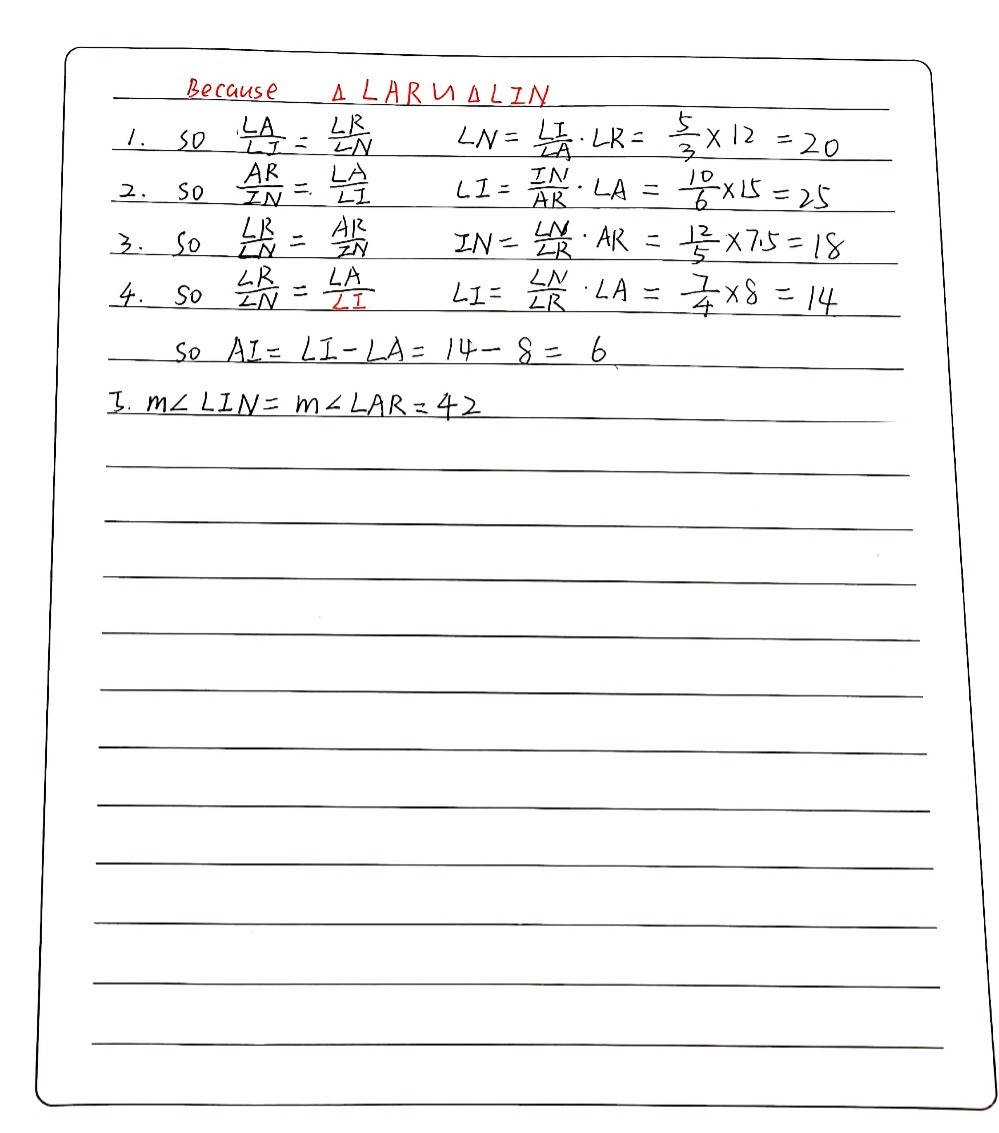 Because △LAR∽△LIN
1. so LA/LI = LR/LN LN = LI/LA · LR = 5/3 × 12 = 20
2. so AR/IN = LA/LI LI = IN/AR · LA = 10/6 × 15 = 25
3. So LR/LN = AR/IN IN = LN/LR · AR = 12/5 × 7.5 = 18
4. So LR/LN = LA/LI LI = LN/LR · LA = 7/4 × 8 = 14
so AI = LI - LA = 14 - 8 = 6
5. m∠LIN = m∠LAR = 42